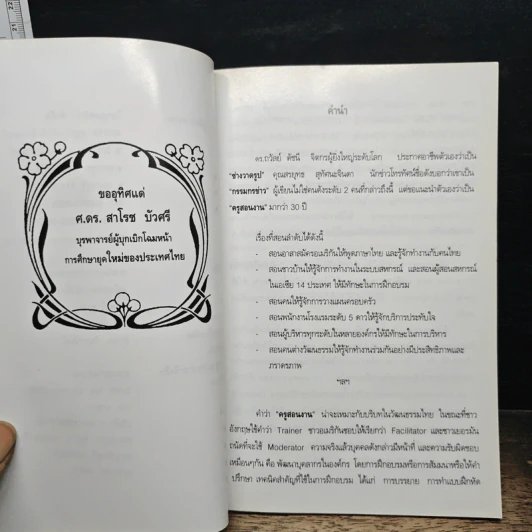 ขออุทิศแด่
ศ.ดร. สาโรช บัวศรี
บุรพาจารย์ผู้บุกเบิกโฉมหน้า
การศึกษายุคใหม่ของประเทศไทย
คำนำ
ดร.ถวัลย์ ดัชนี จิตรกรผู้ยิ่งใหญ่ระดับโลก ประกาศอาชีพตัวเองว่าเป็น
"ช่างวาดรูป" คุณสรยุทธ สุทัศนะจินดา นักข่าวโทรทัศน์ชื่อดังบอกว่าเขาเป็น
"กรรมกรข่าว" ผู้เขียนไม่ใช่คนดังระดับ 2 คนที่กล่าวถึงนี้ แต่ขอแนะนำตัวเองว่าเป็น
"ครูสอนงาน" มากว่า 30 ปี
เรื่องที่สอนลำดับได้ดังนี้
- สอนอาสาสมัครอเมริกันให้พูดภาษาไทย และรู้จักทำงานกับคนไทย
- สอนชาวบ้านให้รู้จักการทำงานในระบบสหกรณ์ และสอนผู้สอนสหกรณ์
ในเอเชีย 14 ประเทศ ให้มีทักษะในการฝึกอบรม
- สอนคนให้รู้จักการวางแผนครอบครัว
- สอนพนักงานโรงแรมระดับ 5 ดาวให้รู้จักบริการประทับใจ
- สอนผู้บริหารทุกระดับในหลายองค์กรให้มีทักษะในการบริหาร
- สอนคนต่างวัฒนธรรมให้รู้จักทำงานร่วมกันอย่างมีประสิทธิภาพและ
ภราดรภาพ
ฯลฯ
คำว่า "ครูสอนงาน" น่าจะเหมาะกับบริบทในวัฒนธรรมไทย ในขณะที่ชาว
อังกฤษใช้คำว่า Trainer ชาวอเมริกันชอบให้เรียกว่า Facilitator และชาวเยอรมัน
ถนัดที่จะใช้ Moderator ความจริงแล้วบุคคลดังกล่าวมีหน้าที่ และความรับผิดชอบ
เหมือนๆกัน คือ พัฒนาบุคลากรในองค์กร โดยการฝึกอบรมหรือการสัมมนาหรือให้คำ
ปรึกษา เทคนิคสำคัญที่ใช้ในการฝึกอบรม ได้แก่ การบรรยาย การทำแบบฝึกหัด